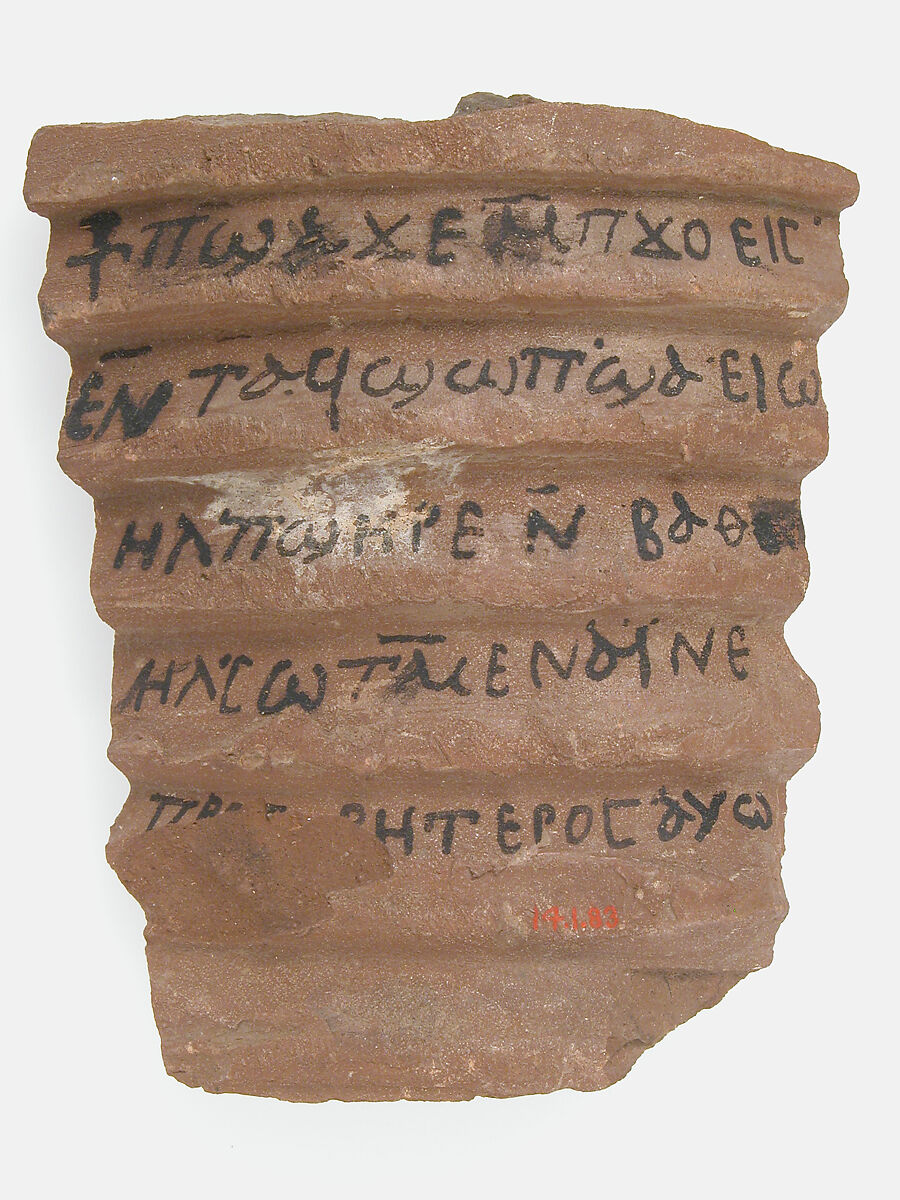 ⳨ ⲡϣⲁϫⲉ ⲙ̄ⲡϫⲟⲉⲓⲥ·
ⲉⲛ̄ⲧⲁϥϣⲱⲡ ϣⲁ ⲉⲓⲱ
ⲏⲗ ⲡϣⲏⲣⲉ ⲛ̄ ⲃⲁⲑ
ⲏⲗ· ⲥⲱⲧⲙ̄ ⲉⲛⲁⲓ̈ ⲛⲉ
ⲡⲣⲉⲥⲃⲏⲧⲉⲣⲟⲥ ⲁⲩⲱ
14.1.83